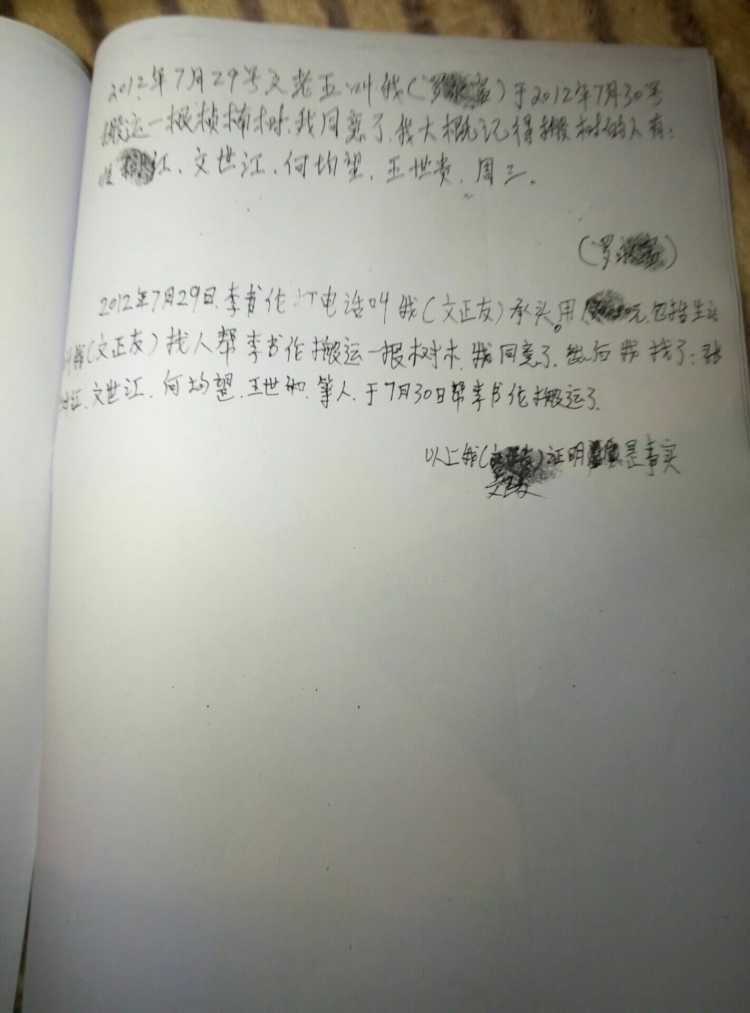 2012年7月29号文老五叫我(罗)于2012年7月30号
搬运一根桢楠树.我同意了.我大概记得搬树的人有:
江、文世江、何均望、王世贵、周三。
(罗)
2012年7月29日.李书伦打电话叫我(文正友)承头.用元.包括生
(文正友)找人帮李书伦搬运一根树木.我同意了.然后我找了:张
江、文世江、何均望、王世和、等人、于7月30日帮李书伦搬运了.
以上我()证明是事实
文正友